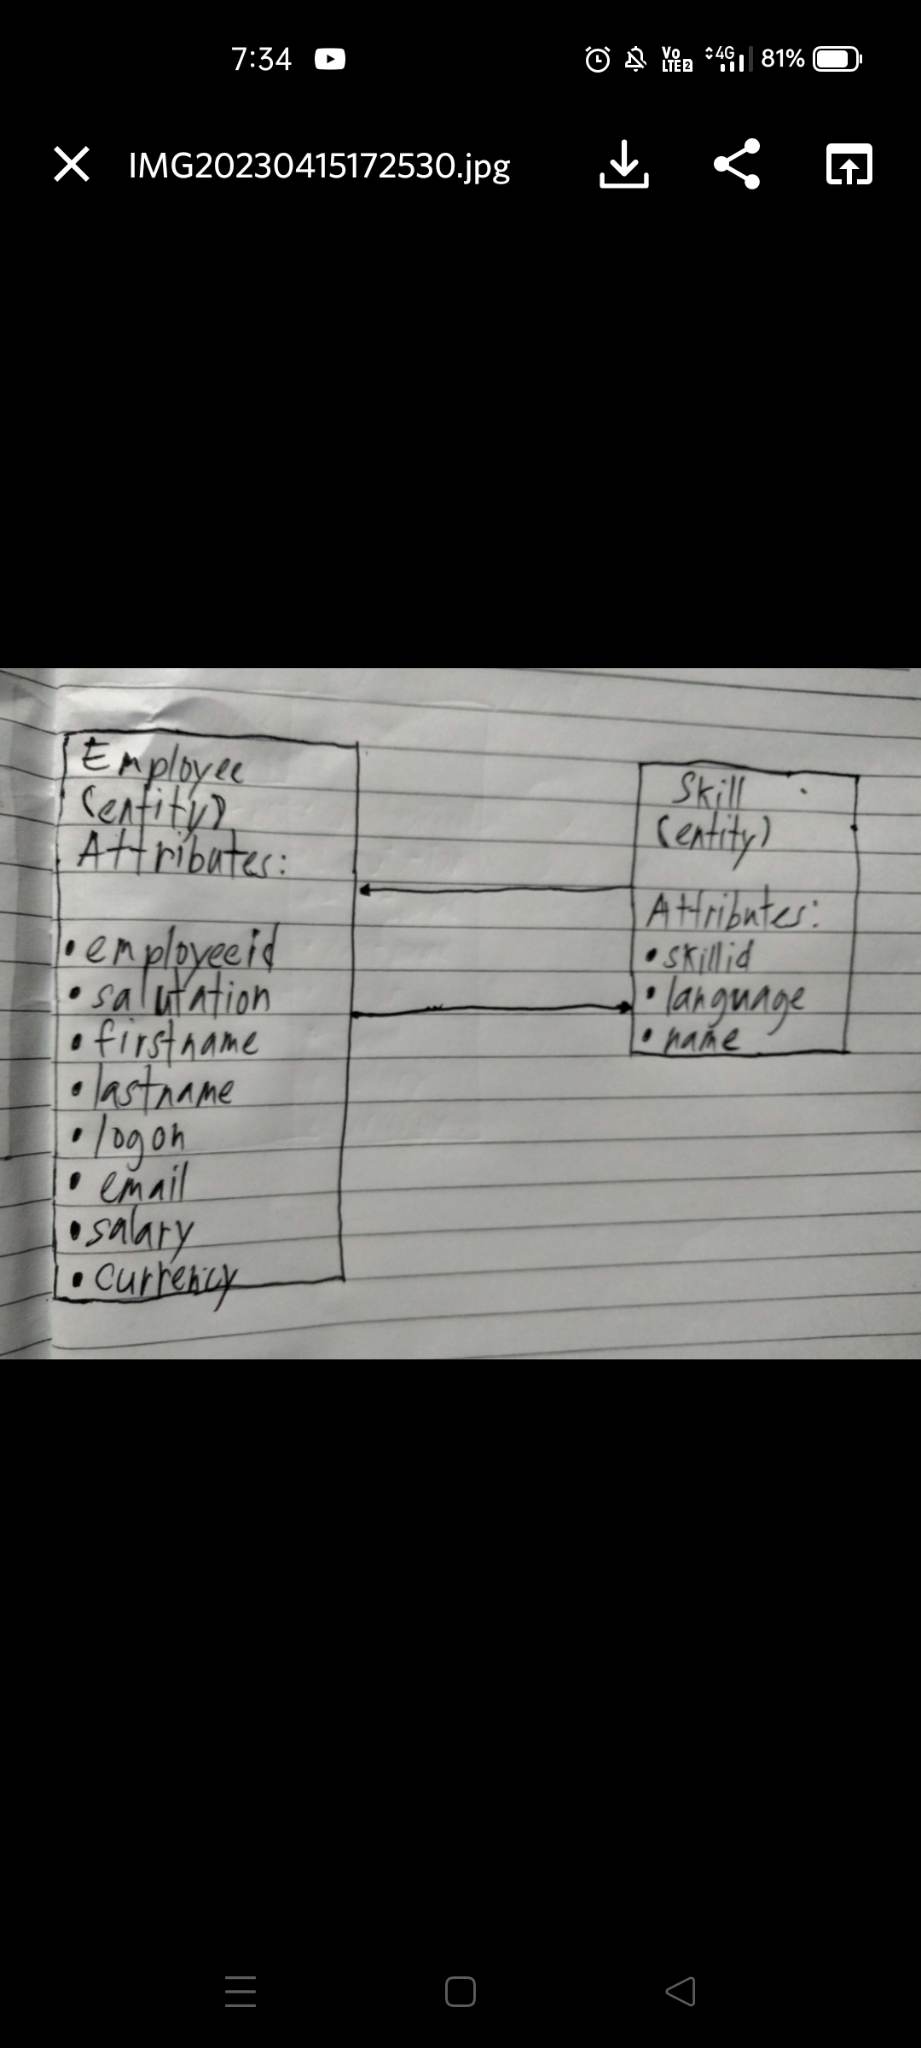 7:34
Vo
LTE2
4G
81%
IMG20230415172530.jpg
Employee
(entity)
Attributes:
• employeeid
• salutation
• firstname
• lastname
• logon
• email
• salary
• currency
Skill
(entity)
Attributes:
• skillid
• language
• name